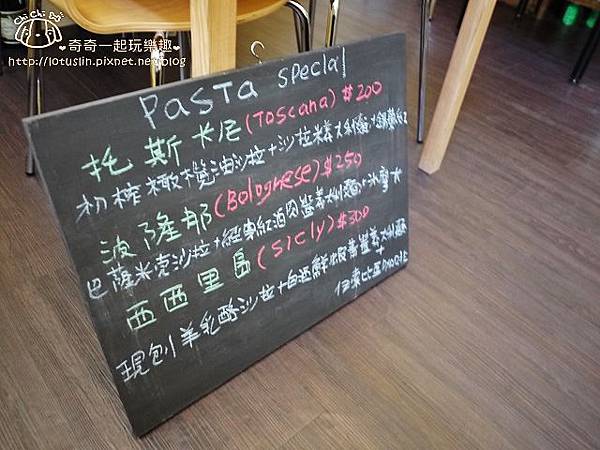 Chi Chi Do!
❤奇奇一起玩樂趣❤
http://lotuslin.pixnet.net/blog
Pasta special
托斯卡尼(Toscana)$200
初榨橄欖油沙拉+沙拉米義大利麵+錫蘭紅
波隆那(Bolognese)$250
巴薩米克沙拉+經典紅酒肉醬義大利麵+冰摩卡
西西里島(Sicily)$300
現刨羊乳酪沙拉+白酒鮮蝦蕃茄義大利麵
+
伊索比亞